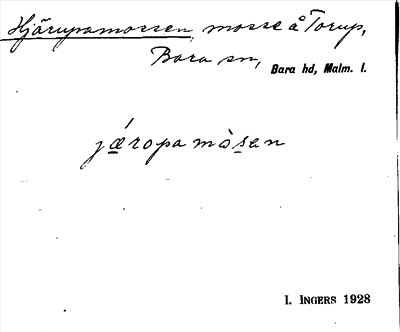 Hjärupamossen, mosse å Torup,
Bara sn, Bara hd, Malm. l.
jǽropamòsen
I. INGERS 1928